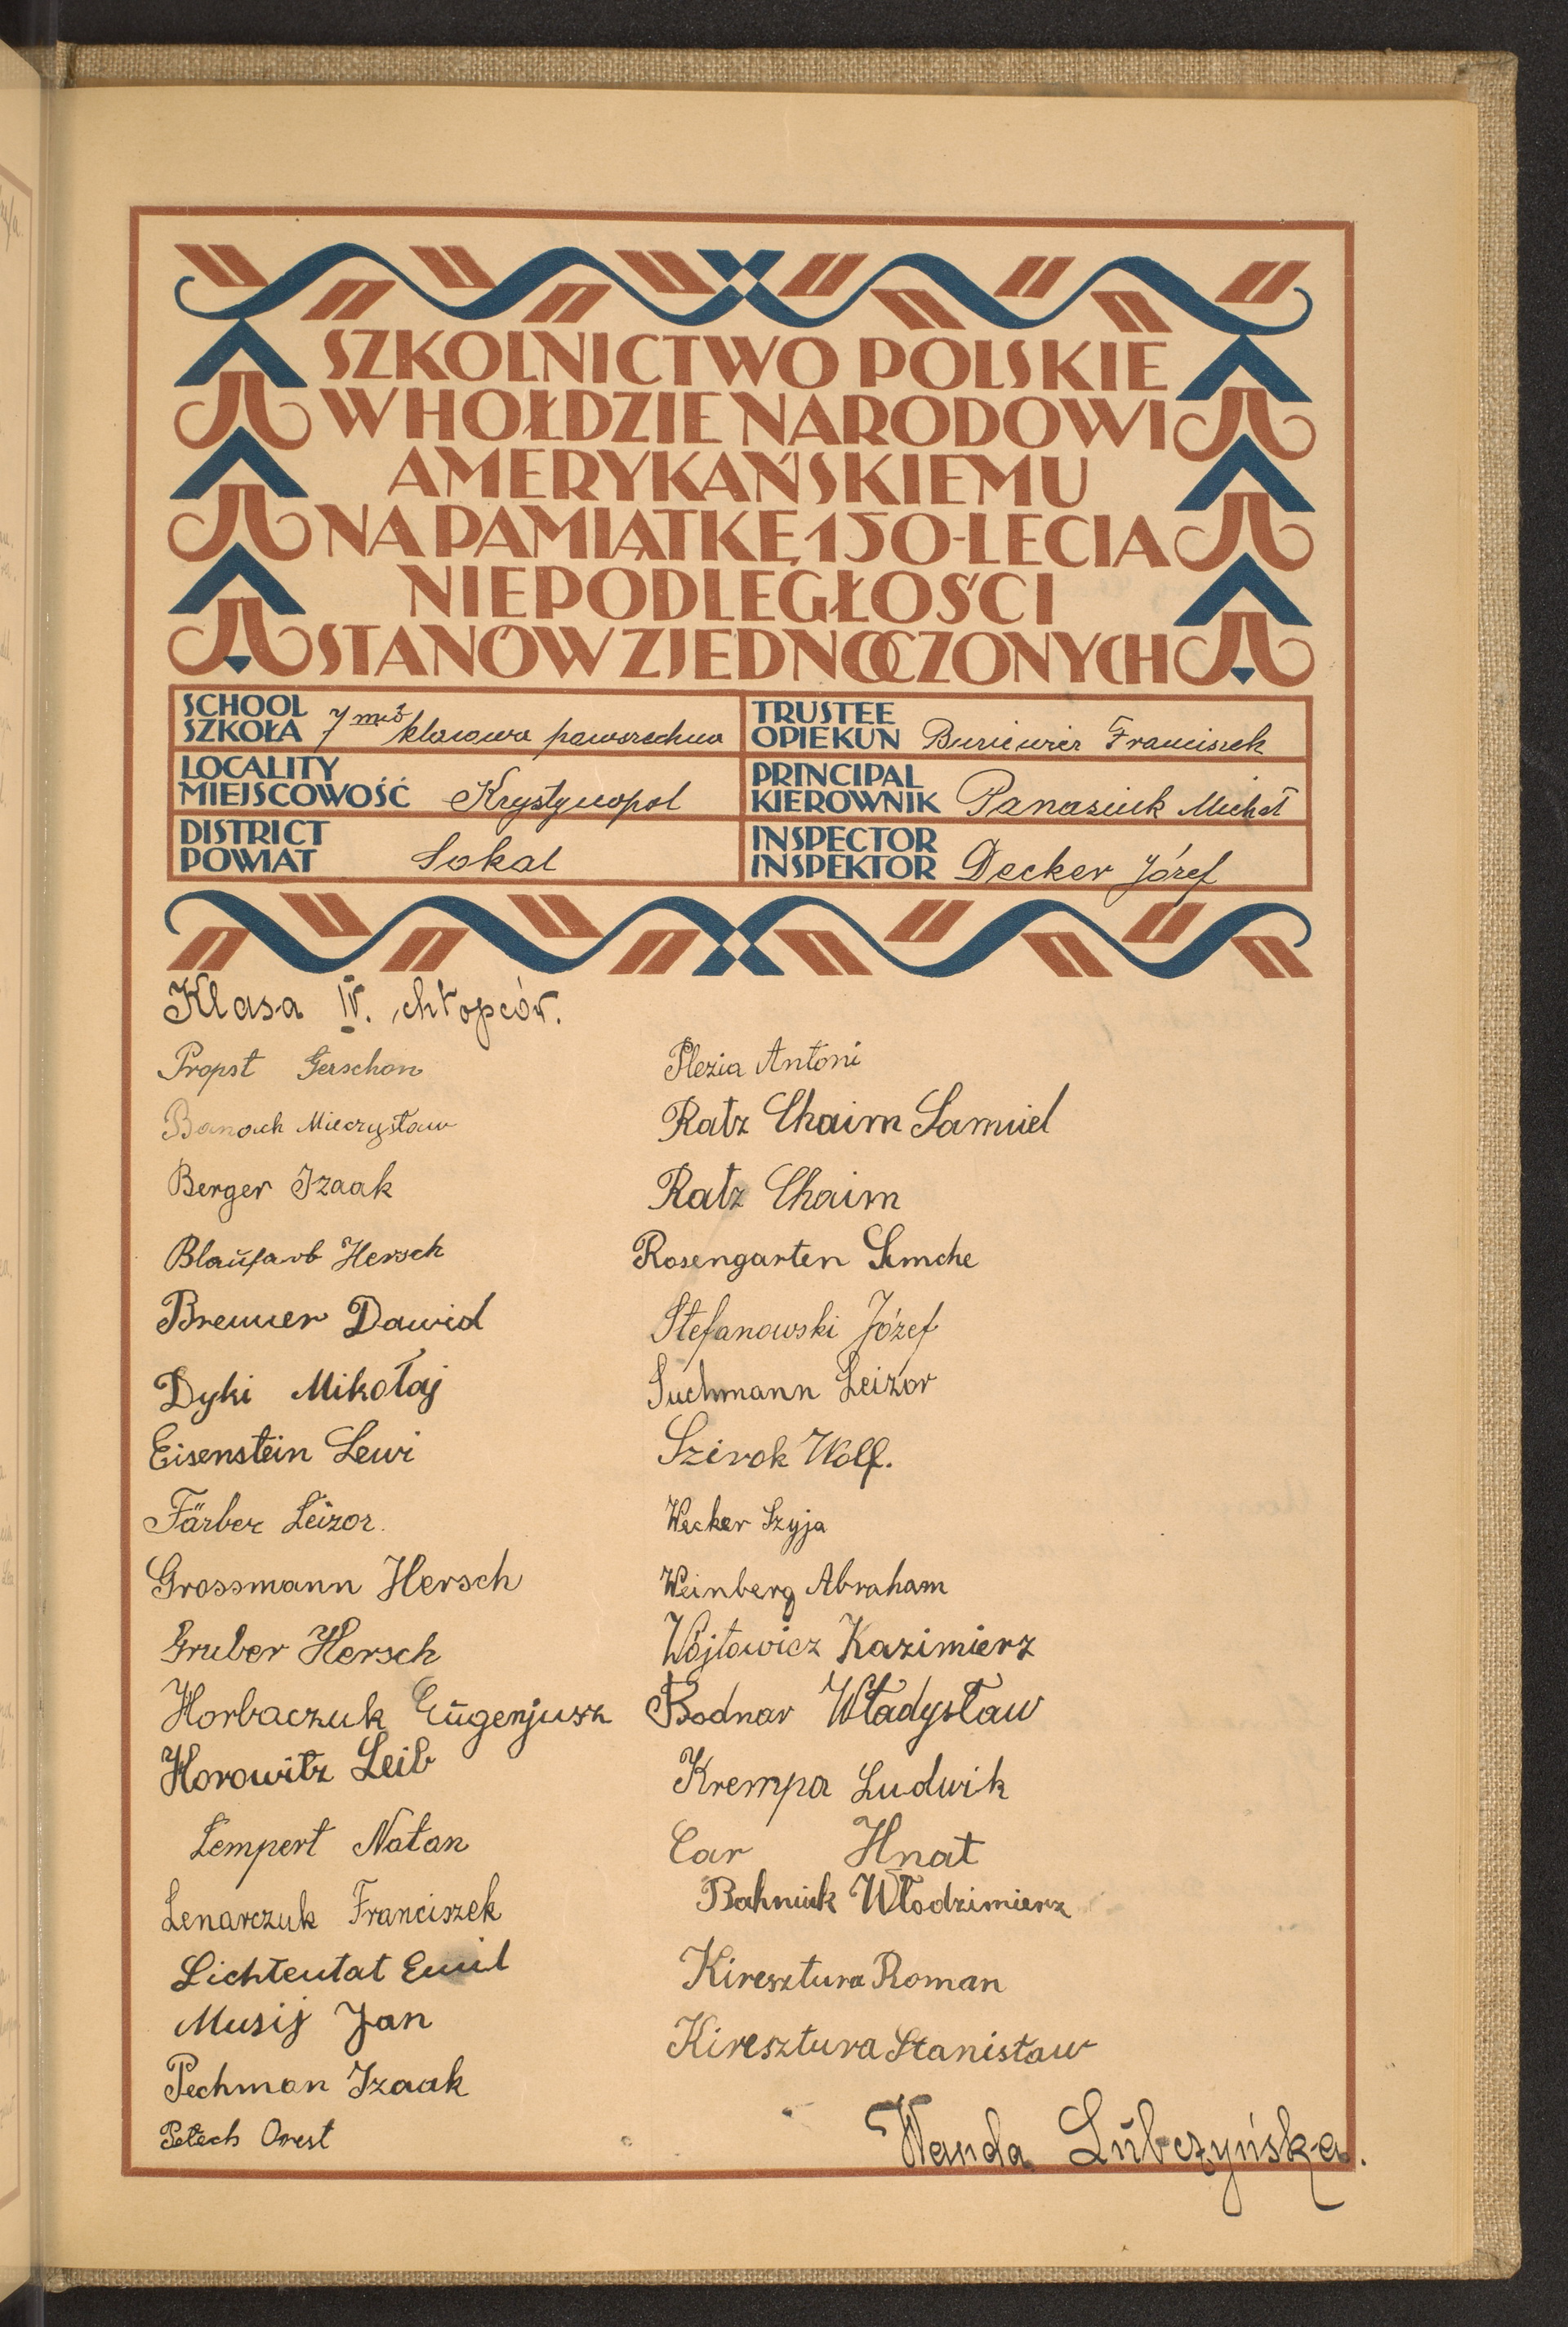 SZKOLNICTWO POLSKIE
W HOŁDZIE NARODOWI
AMERYKAŃSKIEMU
NA PAMIĄTKĘ 150-LECIA
NIEPODLEGŁOŚCI
STANÓW ZJEDNOCZONYCH
SCHOOL
SZKOŁA 7 mio klasowa powszechna
LOCALITY
MIEJSCOWOŚĆ Krystynopol
DISTRICT
POWIAT Sokal
TRUSTEE
OPIEKUN Franciszek
PRINCIPAL
KIEROWNIK Panasiuk Michał
INSPECTOR
INSPEKTOR Decker Józef
Klasa IV. chłopców.
Propst Gerschon
Banach Mieczysław
Berger Izaak
Blaufarb Hersch
Bremer Dawid
Dyki Mikołaj
Eisenstein Lewi
Färber Leizor.
Grossmann Hersch
Gruber Hersch
Horbaczuk Eugenjusz
Horowitz Leib
Lempert Natan
Lenarczuk Franciszek
Lichtentat Emil
Musij Jan
Pechman Izaak
Petech Orest
Plezia Antoni
Ratz Chaim Samuel
Ratz Chaim
Rosengarten Simche
Stefanowski Józef
Suchmann Leizor
Szirok Wolf.
Wecker Szyja
Weinberg Abraham
Wójtowicz Kazimierz
Bodnar Władysław
Krempa Ludwik
Car Hnat
Bahniuk Włodzimierz
Kiresztura Roman
Kiresztura Stanisław
Wanda Lubczyńska.